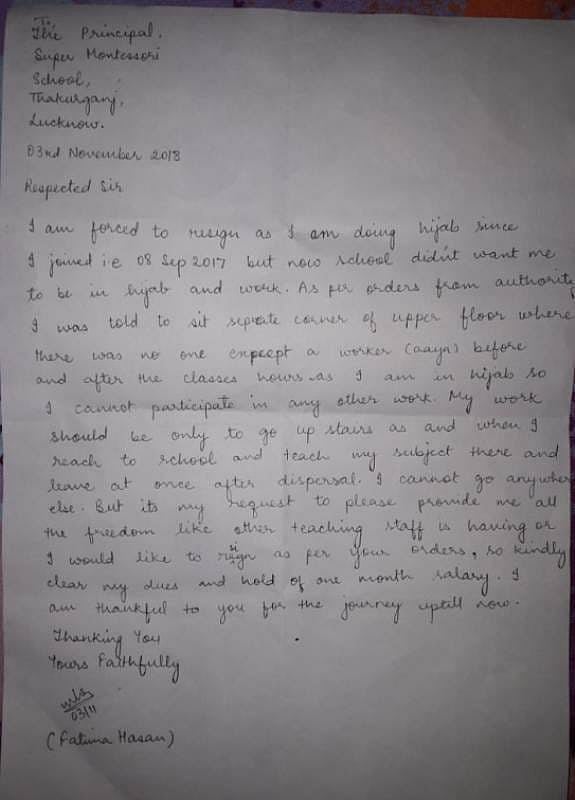 To,
The Principal,
Super Montessori
School,
Thakurganj,
Lucknow.
03rd November 2018
Respected Sir
I am forced to resign as I am doing hijab since
I joined i.e 08 Sep 2017 but now school didn't want me
to be in hijab and work. As per orders from authority
I was told to sit seprate corner of upper floor where
there was no one expcept a worker (aaya) before
and after the classes hours as I am in hijab so
I cannot participate in any other work. My work
should be only to go up stairs as and when I
reach to school and teach my subject there and
leave at once after dispersal. I cannot go anywher
else. But its my request to please provide me all
the freedom like other teaching staff is having or
I would like to resign as per your orders, so kindly
clear my dues and hold of one month salary. I
am thankful to you for the journey uptill now.
Thanking You
Yours Faithfully
03/11
(Fatima Hasan)